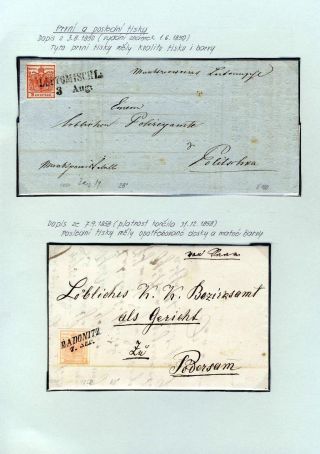 První a poslední tisky
Dopis z 3.8.1850 (vydání známek 1.6.1850)
Tyto první tisky měly kvalitu tisku i barvy
LEITOMISCHL.
3 Aug:
Einem
löblichen
Politschka
Dopis ze 7.9.1858 (platnost končila 31.12.1858)
Poslední tisky měly opotřebované desky a matné barvy
Löbliches K. K. Bezirksamt
als Gericht
RADONITZ
7. SEP.
Zu
Podersam